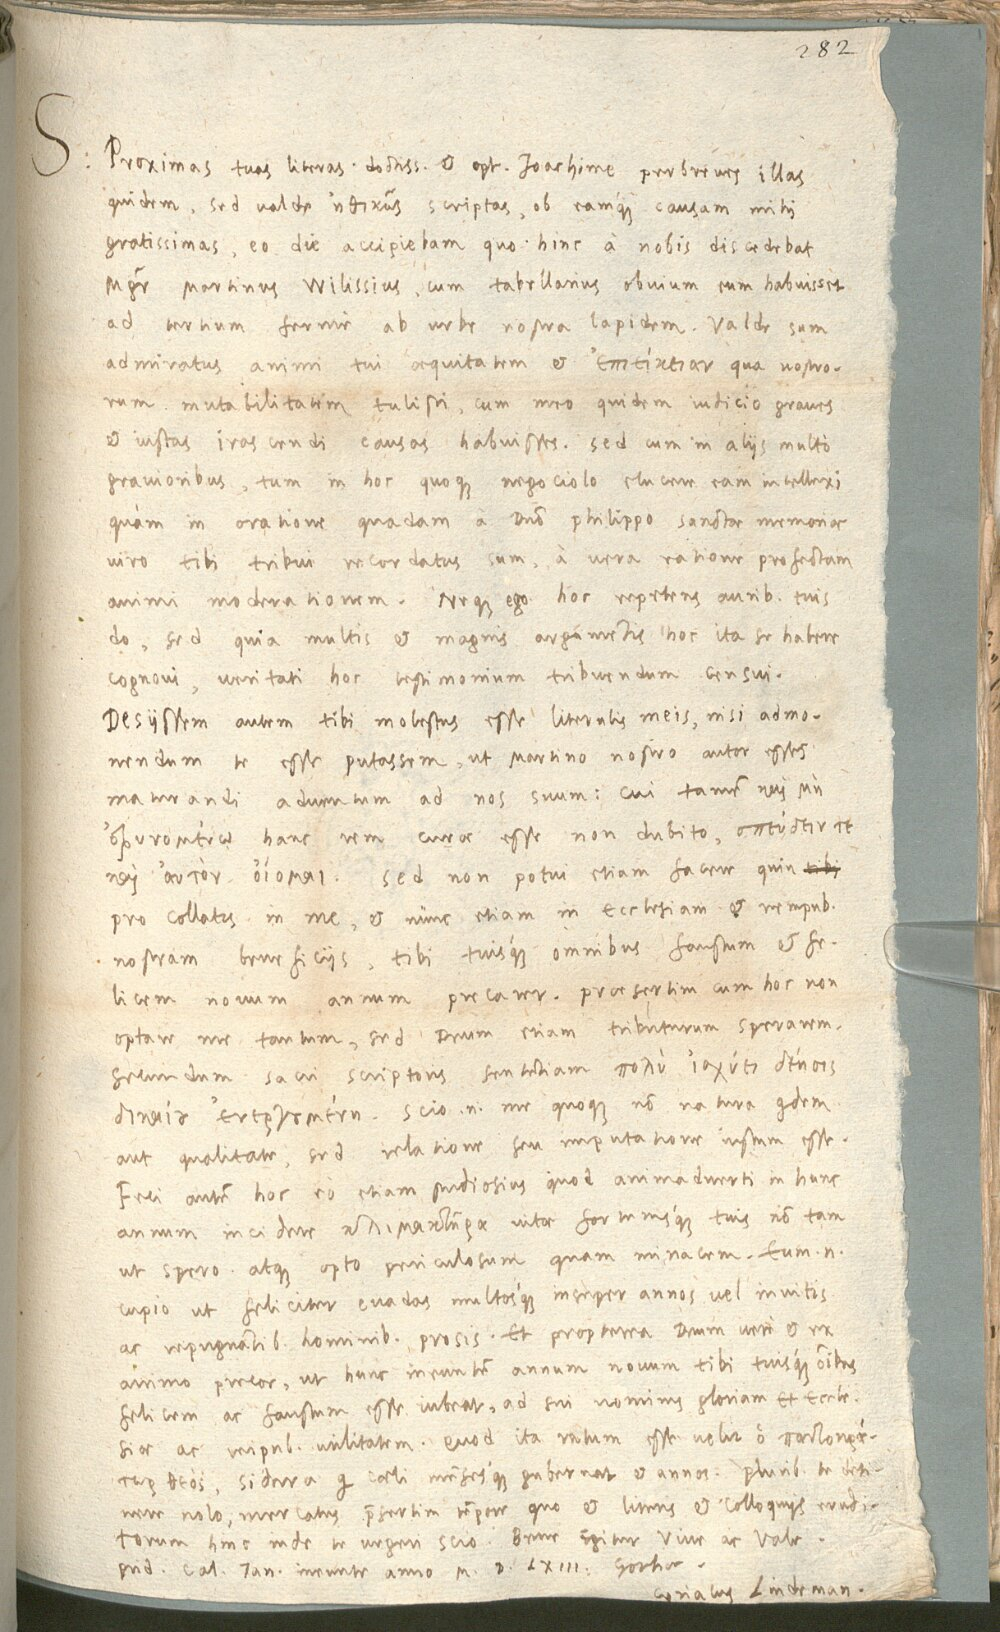 282
S. Proximas tuas literas doctiss. & opt. Joachime perbreves illas
quidem, sed valde ἠθικῶς scriptas, ob eamq́ꝫ causam mihi
gratissimas, eo die accipiebam quo hinc à nobis discedebat
Mgr̄ Martinus Wilissius, cum tabellarius obvium eum habuisset
ad tertium ferme ab urbe nostra lapidem. Valde sum
admiratus animi tui æquitatem & ἐπιείκειαν qua nostro-
rum mutabilitatem tulisti, cum meo quidem iudicio graves
& iustas irascendi causas habuisses. sed cum in alijs multo
gravioribus, tum in hoc quoqꝫ negociolo elucere eam intellexi
quàm in oratione quadam à Dnō philippo sanctæ memoriæ
viro tibi tribui recordatus sum, à vera ratione profectam
animi moderationem. Neqꝫ ego hoc repetens aurib. tuis
do, sed quia multis & magnis argumētis hoc ita se habere
cognovi, veritati hoc testimonium tribuendum censui.
Desijssem autem tibi molestus esse literulis meis, nisi admo-
nendum te esse putassem, ut Martino nostro autor esses
maturandi adventum ad nos suum: cui tamē καὶ μὴ
ὀτρυνομένῳ hanc rem curæ esse non dubito, σπεύδειν τε
καὶ αὐτὸν οἴομαι. Sed non potui etiam facere quin tibi
pro collatis in me, & nūnc etiam in Ecclesiam & rempub.
nostram beneficijs, tibi tuisq́ꝫ omnibus faustum & fe-
licem novum annum precarer. præsertim cum hoc non
optare me tantum, sed Deum etiam tributurum sperarem.
secundum sacri scriptoris sententiam πολὺ ἰσχύει δέησις
δικαίου ἐνεργουμένη. Scio .n. me quoqꝫ nō natura qdem
aut qualitate, sed relatione seu imputatione iustum esse.
Feci autē hoc eò etiam studiosius quod animadverti in hunc
annum incidere κλιμακτῆρα vitæ fortunisq́ꝫ tuis nō tam
ut spero atqꝫ opto periculosum quam minacem. Eum .n.
cupio ut feliciter evadas multosq́ꝫ insuper annos vel invitis
ac repugnātib. hominib. prosis. Et propterea Deum verè & ex
animo precor, ut hunc ineuntē annum novum tibi tuisq́ꝫ ōibus
felicem ac faustum esse iubeat, ad sui nominis gloriam Et Eccle-
siæ ac reipub. utilitatem. Quod ita ratum esse velit ὁ παντοκρά-
τωρ θεὸς, sidera q cœli mēsesq́ꝫ gubernat & annos. plurib. te deti-
nere nolo, mercatus p̄sertim tēpore quo & literis & colloquijs erudi-
torum hinc inde te urgeri scio. Bene igitur Vive ac Vale.
prid. Cal. Jan. ineunte anno M. D. LXIII. Gothæ.
Cyriacus Lindeman.